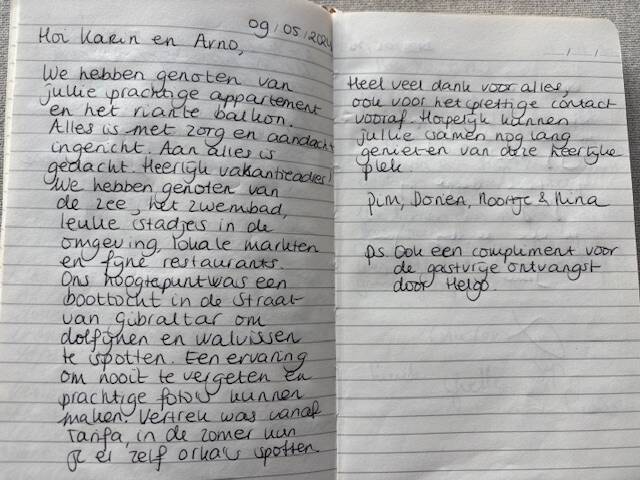 09/05/2024
Hoi Karin en Arno,
We hebben genoten van
jullie prachtige appartement
en het riante balkon.
Alles is met zorg en aandacht
ingericht. Aan alles is
gedacht. Heerlijk vakantieadres!
We hebben genoten van
de zee, het zwembad,
leuke stadjes in de
omgeving, lokale markten
en fijne restaurants.
Ons hoogtepunt was een
boottocht in de straat
van Gibraltar om
dolfijnen en walvissen
te spotten. Een ervaring
om nooit te vergeten en
prachtige foto's kunnen
maken. Vertrek was vanaf
Tarifa, in de zomer kun
je er zelf orka's spotten.
Heel veel dank voor alles,
ook voor het prettige contact
vooraf. Hopelijk kunnen
jullie samen nog lang
genieten van deze heerlijke
plek.
Pim, Dorien, Noortje & Nina
ps Ook een compliment voor
de gastvrije ontvangst
door Helga.